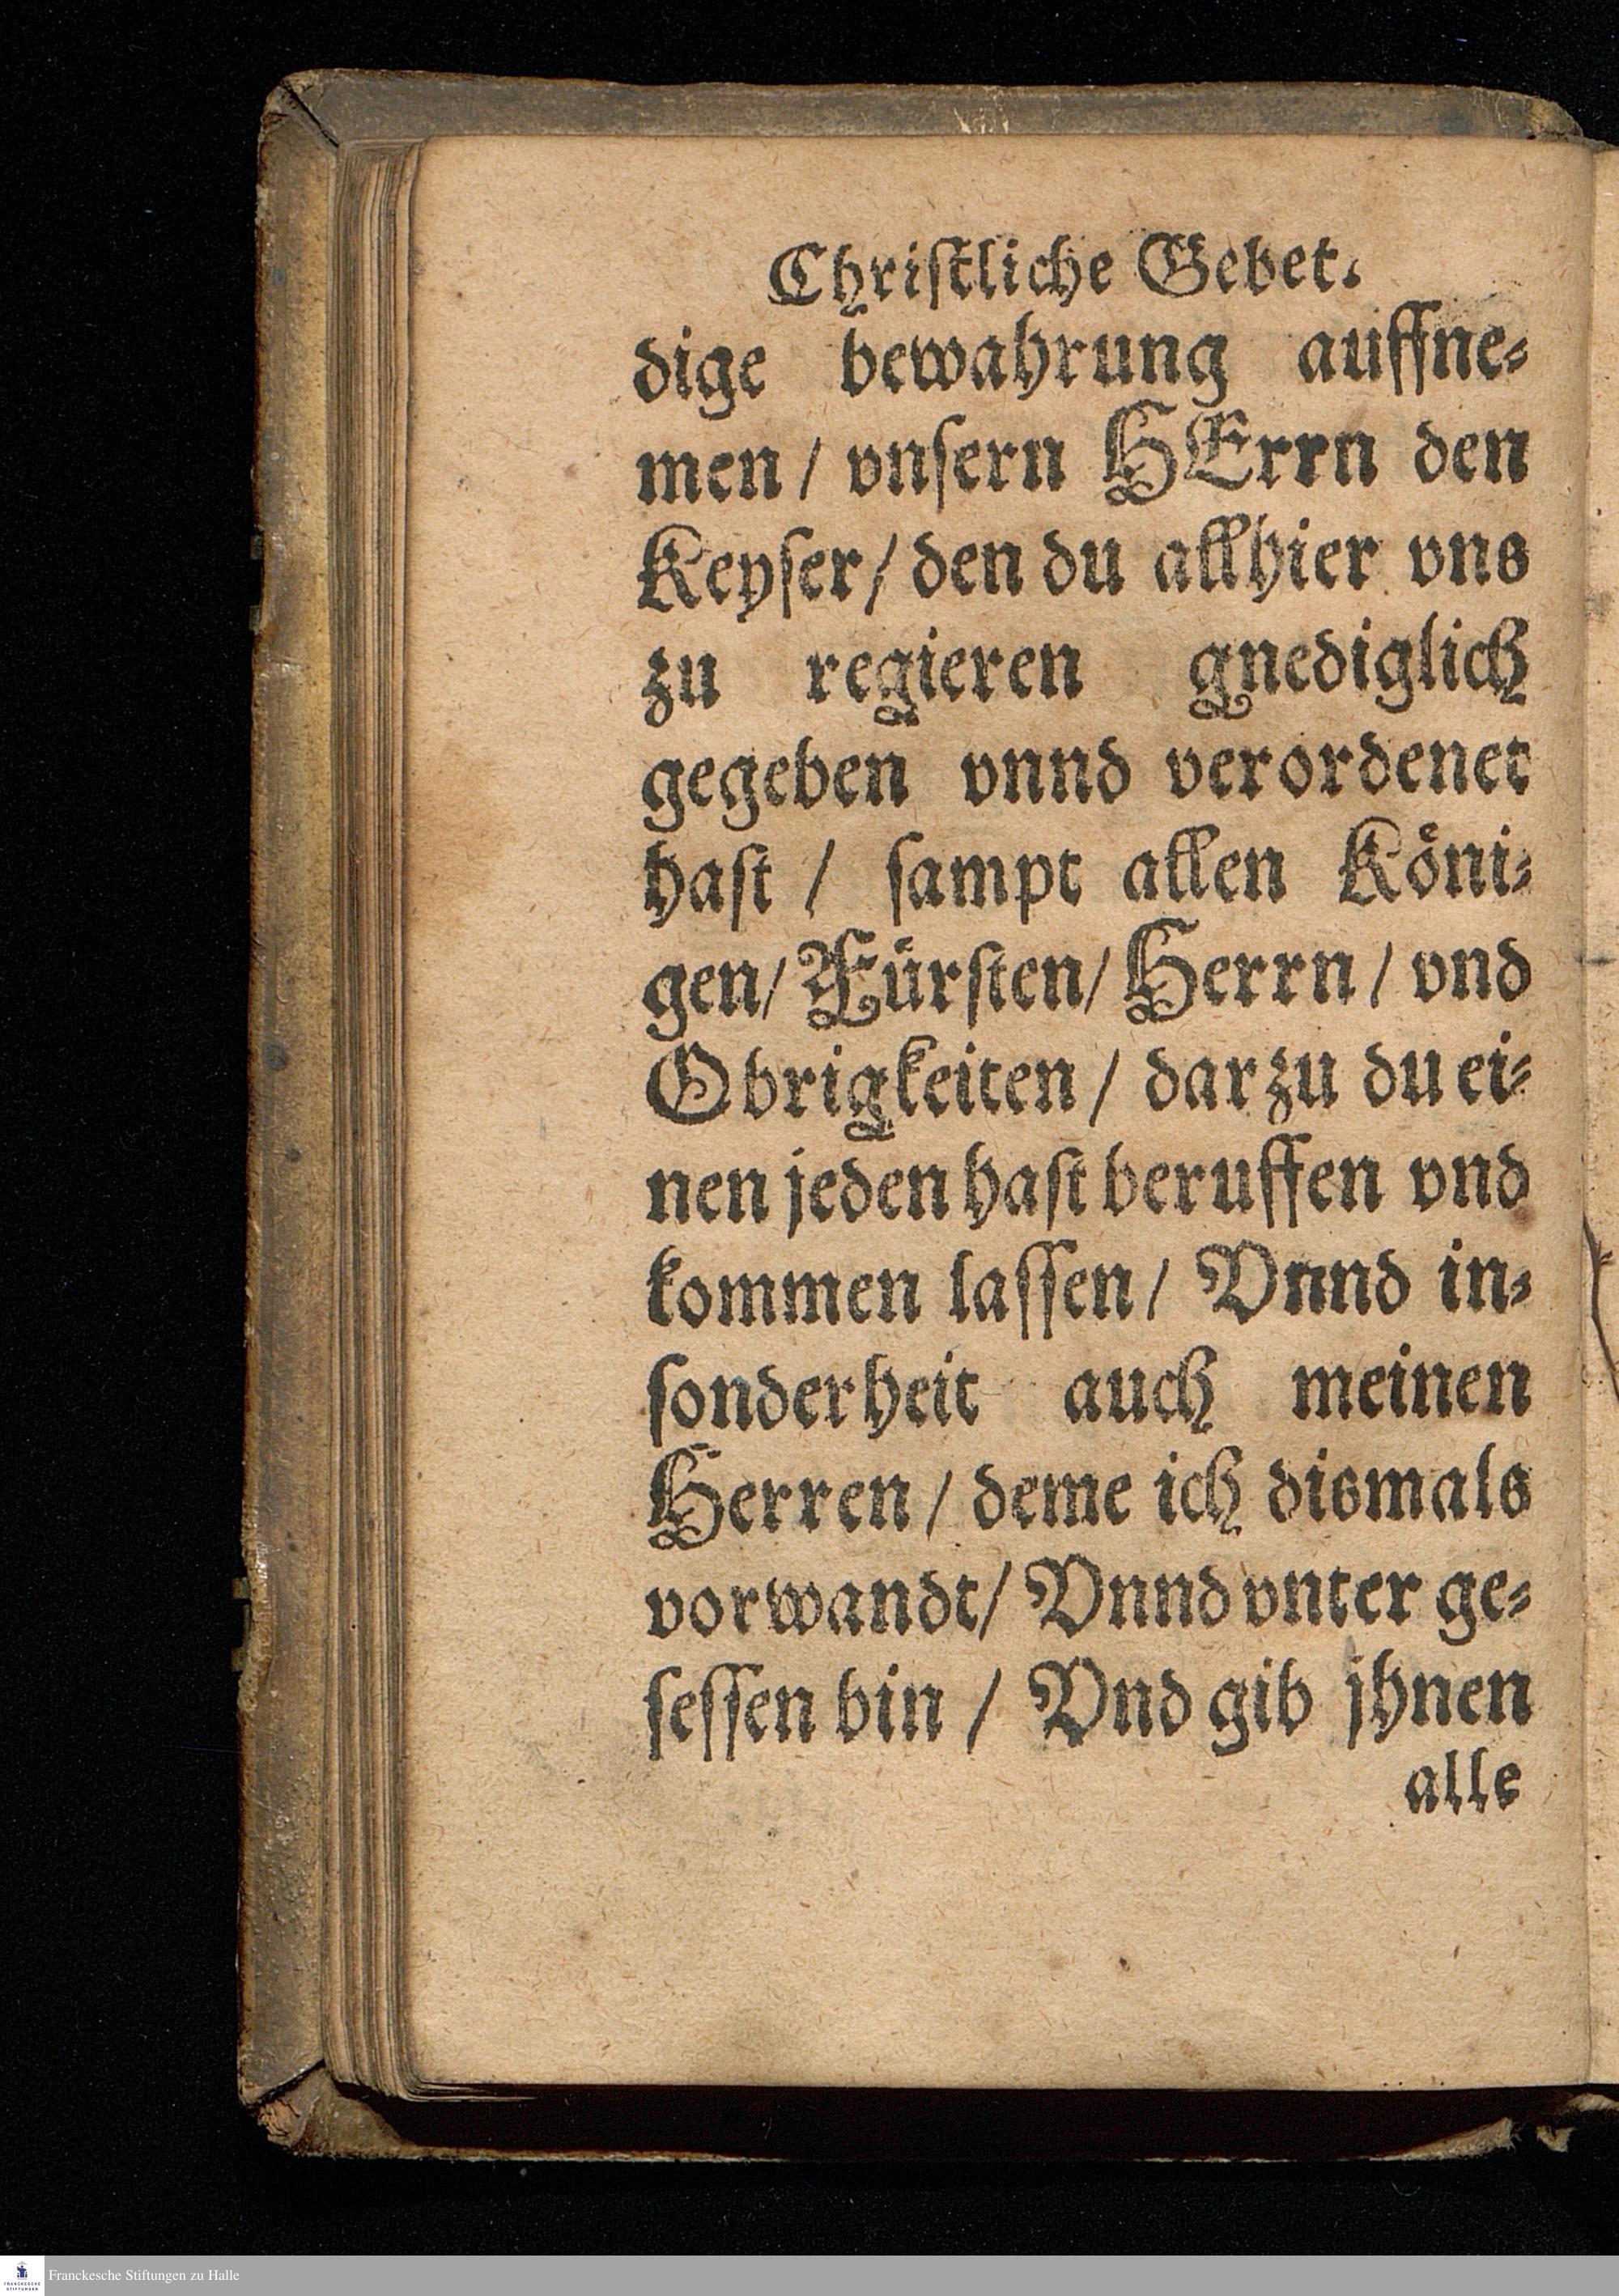 Christliche Gebet.
dige bewahrung auffne⸗
men / vnſern HErrn den
Keyſer / den du allhier vns
zu regieren gnediglich
gegeben vnnd verordenet
haſt / ſampt allen Köni⸗
gen / Fürſten / Herrn / vnd
Obrigkeiten / darzu du ei⸗
nen jeden haſt beruffen vnd
kommen laſſen / Vnnd in⸗
ſonderheit auch meinen
Herren / deme ich dismals
vorwandt / Vnnd vnter ge⸗
ſeſſen bin / Vnd gib jhnen
alle
FRANCKESCHE STIFTUNGEN
Franckesche Stiftungen zu Halle